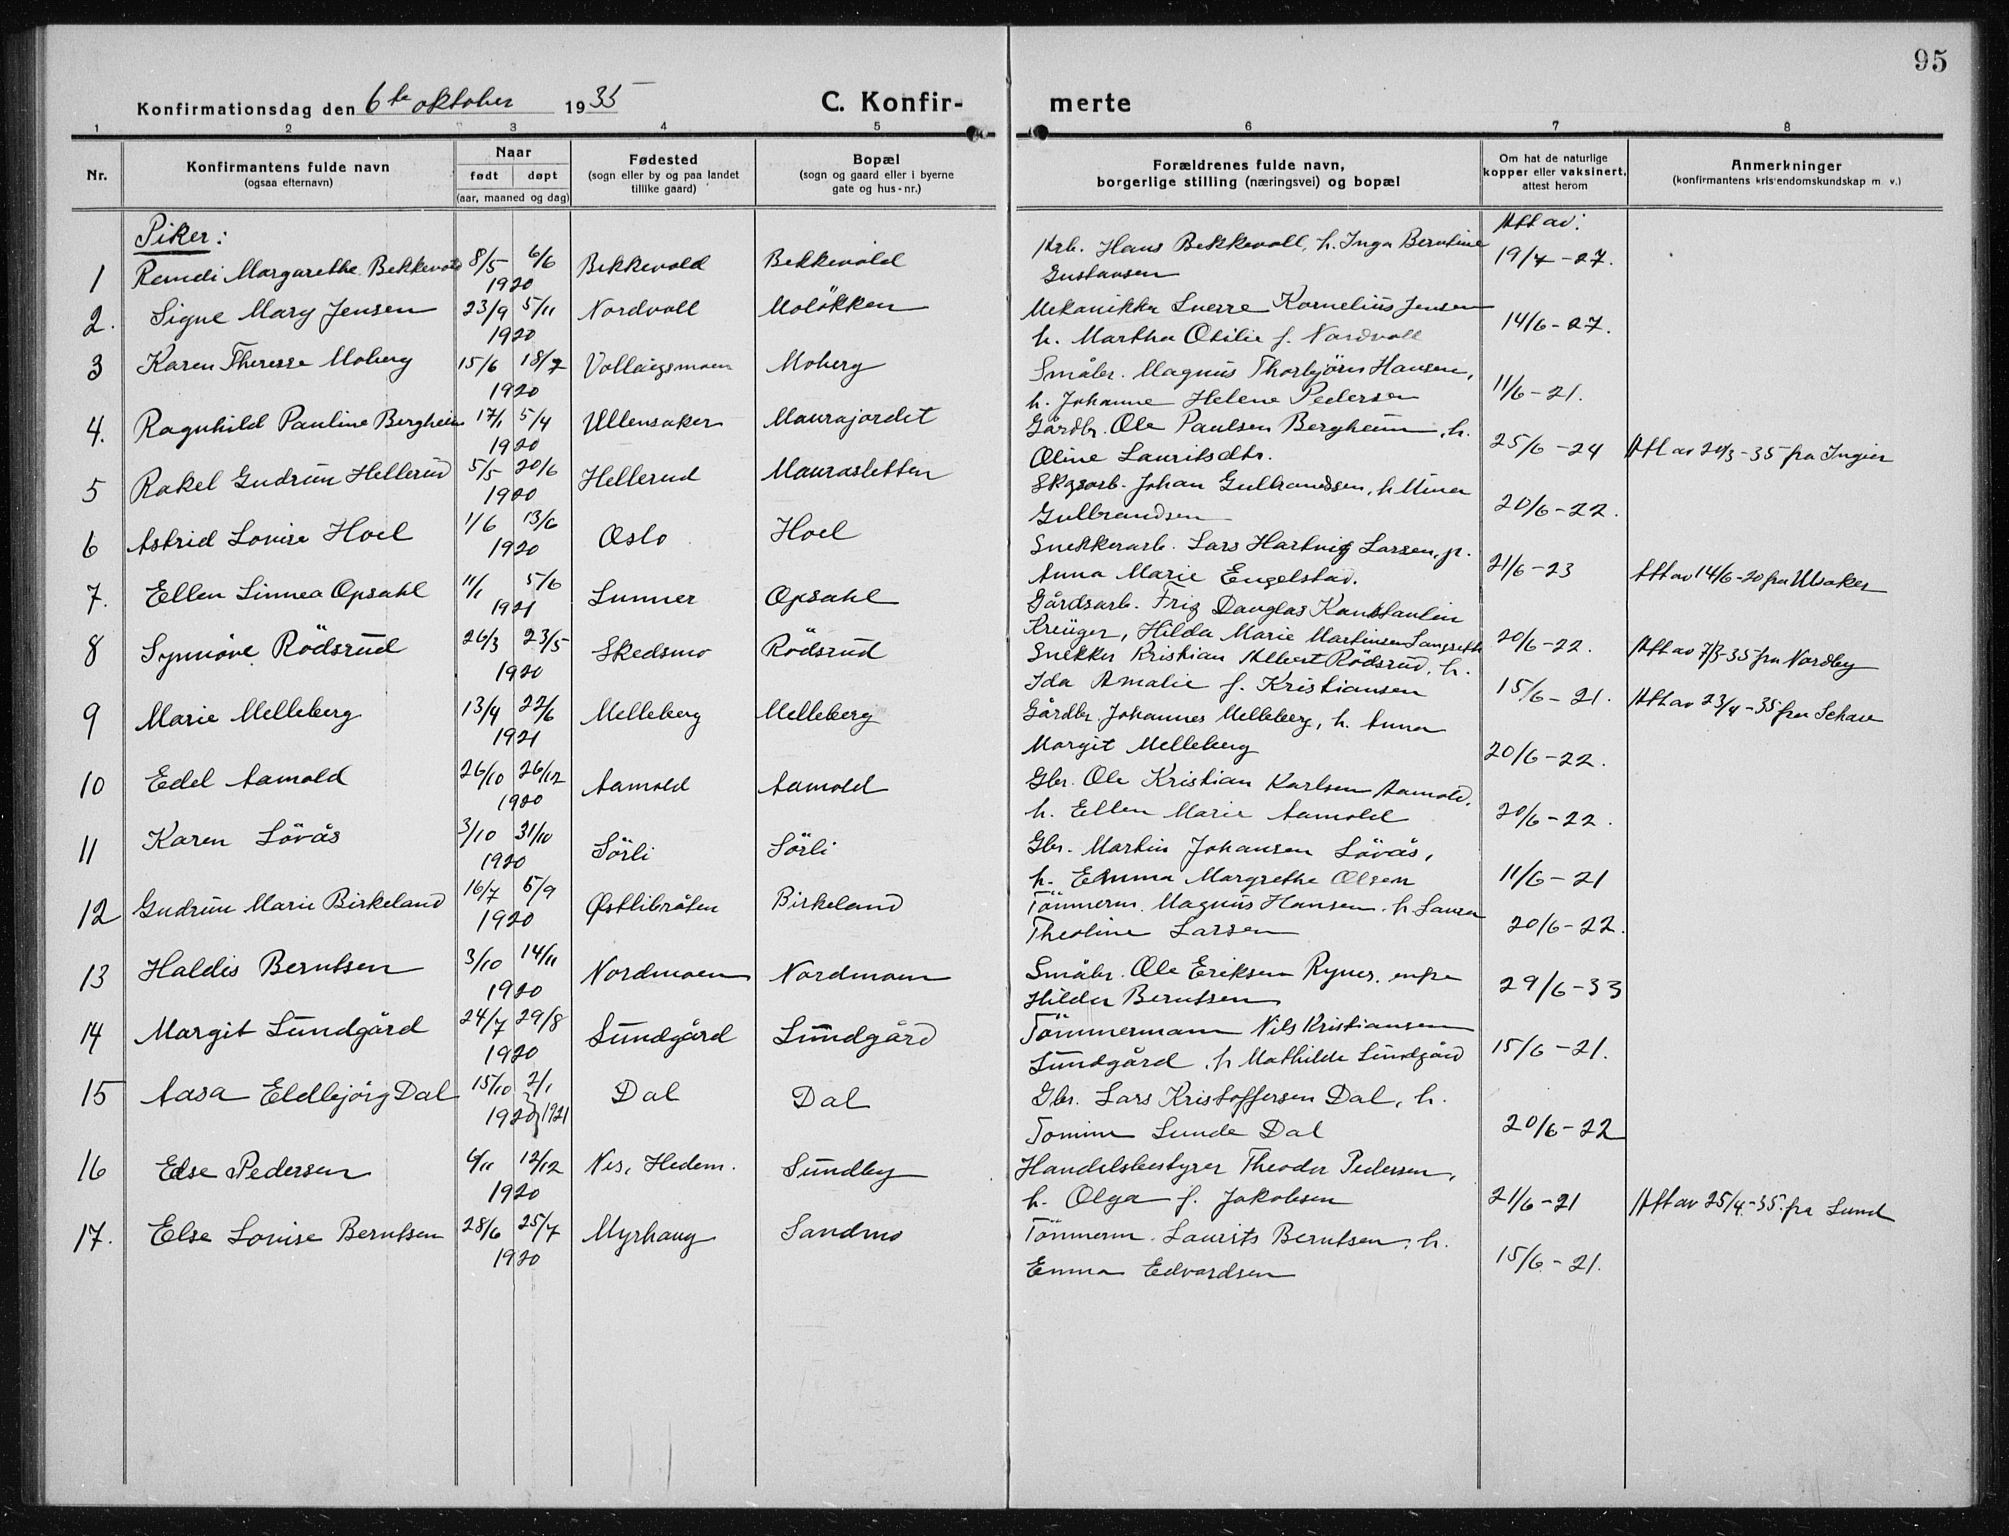 95
Konfirmationsdag den 6te oktober 1935
C. Konfir- merte
1 2 3 4 5 6 7 8
Nr.
Konfirmantens fulde navn
(ogsaa efternavn)
Naar
født døpt
(aar, maaned og dag)
Fødested
(sogn eller by og paa landet
tillike gaard)
Bopæl
(sogn og gaard eller i byerne
gate og hus-nr.)
Forældrenes fulde navn,
borgerlige stilling (næringsvei) og bopæl
Om hat de naturlige
kopper eller vaksinert,
attest herom
Anmerkninger
(konfirmantens kristendomskundskap m. v.)
Piker:
Att av:
1 Remdi Margarethe Bekkevold 8/5 6/6 1920 Bekkevold Bekkevold Arb. Hans Bekkevoll, h. Inga Berntine
Gustavsen 19/4-27.
2. Signe Mary Jensen 23/9 5/11 1920 Nordvoll Moløkken Mekaniker Sverre Kornelius Jensen
h. Martha Otilie f. Nordvoll 14/6-27.
3 Karen Therese Moberg 15/6 18/7 1920 Vollaugsmoen Moberg Småbr. Magnus Thorbjørn Hansen,
h. Johanne Helene Pedersen 11/6-21.
4. Ragnhild Pauline Bergheim 17/1 5/4 1920 Ullensaker Maurajordet Gårdbr. Ole Paulsen Bergheim, h.
Oline Lauritsdtr. 25/6-24 Att av 20/3-35 fra Ingier
5 Rakel Gudrun Hellerud 5/5 20/6 1920 Hellerud Maurasletten Skogsarb. Johan Gulbrandsen, h Mina
Gulbrandsen 20/6-22.
6 Astrid Lovise Hoel 1/6 13/6 1920 Oslo Hoel Snekkerarb. Lars Hartvig Larsen, jr.
Anna Marie Engelstad. 21/6-23 Att av 14/6-20 fra Ulsaker
7. Ellen Linnea Opsahl 11/1 5/6 1921 Lunner Opsahl Gårdsarb. Frig Douglas Konstantin
Kreüger, Hilda Marie Martinsen Langseth 20/6-22. Att av 7/3-35 fra Nordby
8 Synnöve Rödsrud 26/3 23/5 1920 Skedsmo Rödsrud Snekker Kristian Albert Rödsrud, h.
Ida Amalie f. Kristiansen 15/6-21. Att av 23/4-35 fra
9 Marie Melleberg 13/4 22/6 1921 Melleberg Melleberg Gårdbr Johannes Melleberg, h. Anna
Margit Melleberg 20/6-22.
10 Edel Aamold 26/10 26/12 1920 Aamold Aamold Gbr. Ole Kristian Karlsen Aamold,
h. Ellen Marie Aamold 20/6-22.
11 Karen Lövås 3/10 31/10 1920 Sörli Sörli Gbr. Martin Johansen Lövås,
h. Emma Margrethe Olsen 11/6-21
12 Gudrun Marie Birkeland 16/7 5/9 1920 Østlibråten Birkeland Tömmerm. Magnus Hansen, h Laura
Theoline Larsen 20/6-22.
13 Haldis Berntsen 3/10 14/11 1920 Nordmoen Nordmoen Småbr. Ole Eriksen Rynes, enke
Hilda Berntsen 29/6-33
14 Margit Sundgård 24/7 29/8 1920 Sundgård Sundgård Tömmermann Nils Kristiansen
Sundgård, h Mathilde Sundgård 15/6-21.
15 Aasa Eldbjörg Dal 15/10 2/1 1920 1921 Dal Dal Gbr. Lars Kristoffersen Dal, h.
Tomine Lunde Dal 20/6-22
16 Else Pedersen 6/11 12/12 1920 Nes, Hedem. Sundby Handelsbestyrer Theodor Pedersen,
h. Olga f. Jakobsen 21/6-21 Att av 25/4-35 fra Lund
17. Else Lovise Berntsen 28/6 25/7 1920 Myrhaug Sandmo Tömmerm. Laurits Berntsen, h.
Emma Edvardsen 15/6-21.